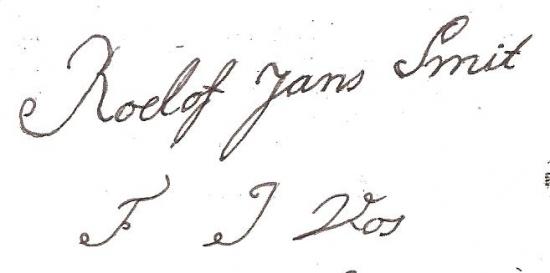 Roelof Jans Smit
F J Vos